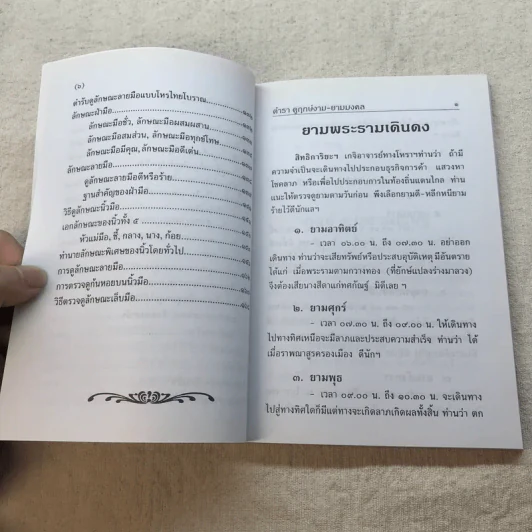 (๖)
ตำรับดูลักษณะลายมือแบบโหรไทยโบราณ
ลักษณะฝ่ามือ
ลักษณะมือชั่ว, ลักษณะมือผสมผสาน
ลักษณะมือสมส่วน, ลักษณะมือทุกข์โทษ
ลักษณะมือมีคุณ, ลักษณะมือดีเด่น
ลักษณะลายมือ
ดูลักษณะลายมือดีหรือร้าย
ฐานสำคัญของฝ่ามือ
วิธีดูลักษณะนิ้วมือ
เอกลักษณะของนิ้วทั้ง ๕
หัวแม่มือ, ชี้, กลาง, นาง, ก้อย
ทำนายลักษณะพิเศษของนิ้วโดยทั่วไป
การดูลักษณะลายมือ
การตรวจดูก้นหอยบนนิ้วมือ
วิธีตรวจดูลักษณะเล็บมือ
ตำรา ดูฤกษ์งาม-ยามมงคล ๑
ยามพระรามเดินดง
สิทธิการิยะฯ เกจิอาจารย์ทางโหราฯท่านว่า ถ้ามี
ความจำเป็นจะเดินทางไปประกอบธุรกิจการค้า แสวงหา
โชคลาภ หรือเพื่อไปประกอบการในท้องถิ่นแดนไกล ท่าน
แนะให้ตรวจดูยามตามวันก่อน พึงเลือกยามดี-หลีกหนียาม
ร้ายไว้ดีนักแลฯ
๑. ยามอาทิตย์
- เวลา ๐๖.๐๐ น. ถึง ๐๗.๓๐ น. อย่าออก
เดินทาง ท่านว่าจะเสียทรัพย์หรือประสบอุบัติเหตุ มีอันตราย
ได้แก่ เมื่อพระรามตามกวางทอง (ที่ยักษ์แปลงร่างมาลวง)
จึงต้องเสียนางสีดาแก่ทศกัณฐ์ มิดีเลย ฯ
๒. ยามศุกร์
- เวลา ๐๗.๓๐ น. ถึง ๐๙.๐๐ น. ให้เดินทาง
ไปทางทิศเหนือจะมีลาภและประสบความสำเร็จ ท่านว่า ได้
เมื่อราพณาสูรครองเมือง ดีนักฯ
๓. ยามพุธ
- เวลา ๐๙.๐๐ น. ถึง ๑๐.๓๐ น. จะเดินทาง
ไปสู่ทางทิศใดก็มีแต่ทางจะเกิดลาภเกิดผลทั้งสิ้น ท่านว่า ตก